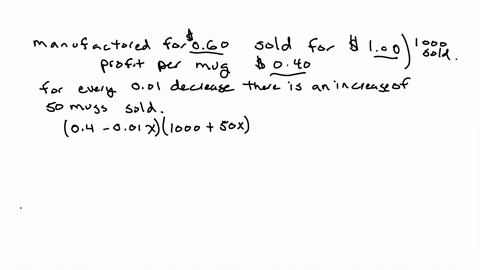 manufactored for $0.60 sold for $1.00) 1000 sold.
profit per mug $0.40
for every 0.01 decrease there is an increase of
50 mugs sold.
(0.4 - 0.01x)(1000 + 50x)